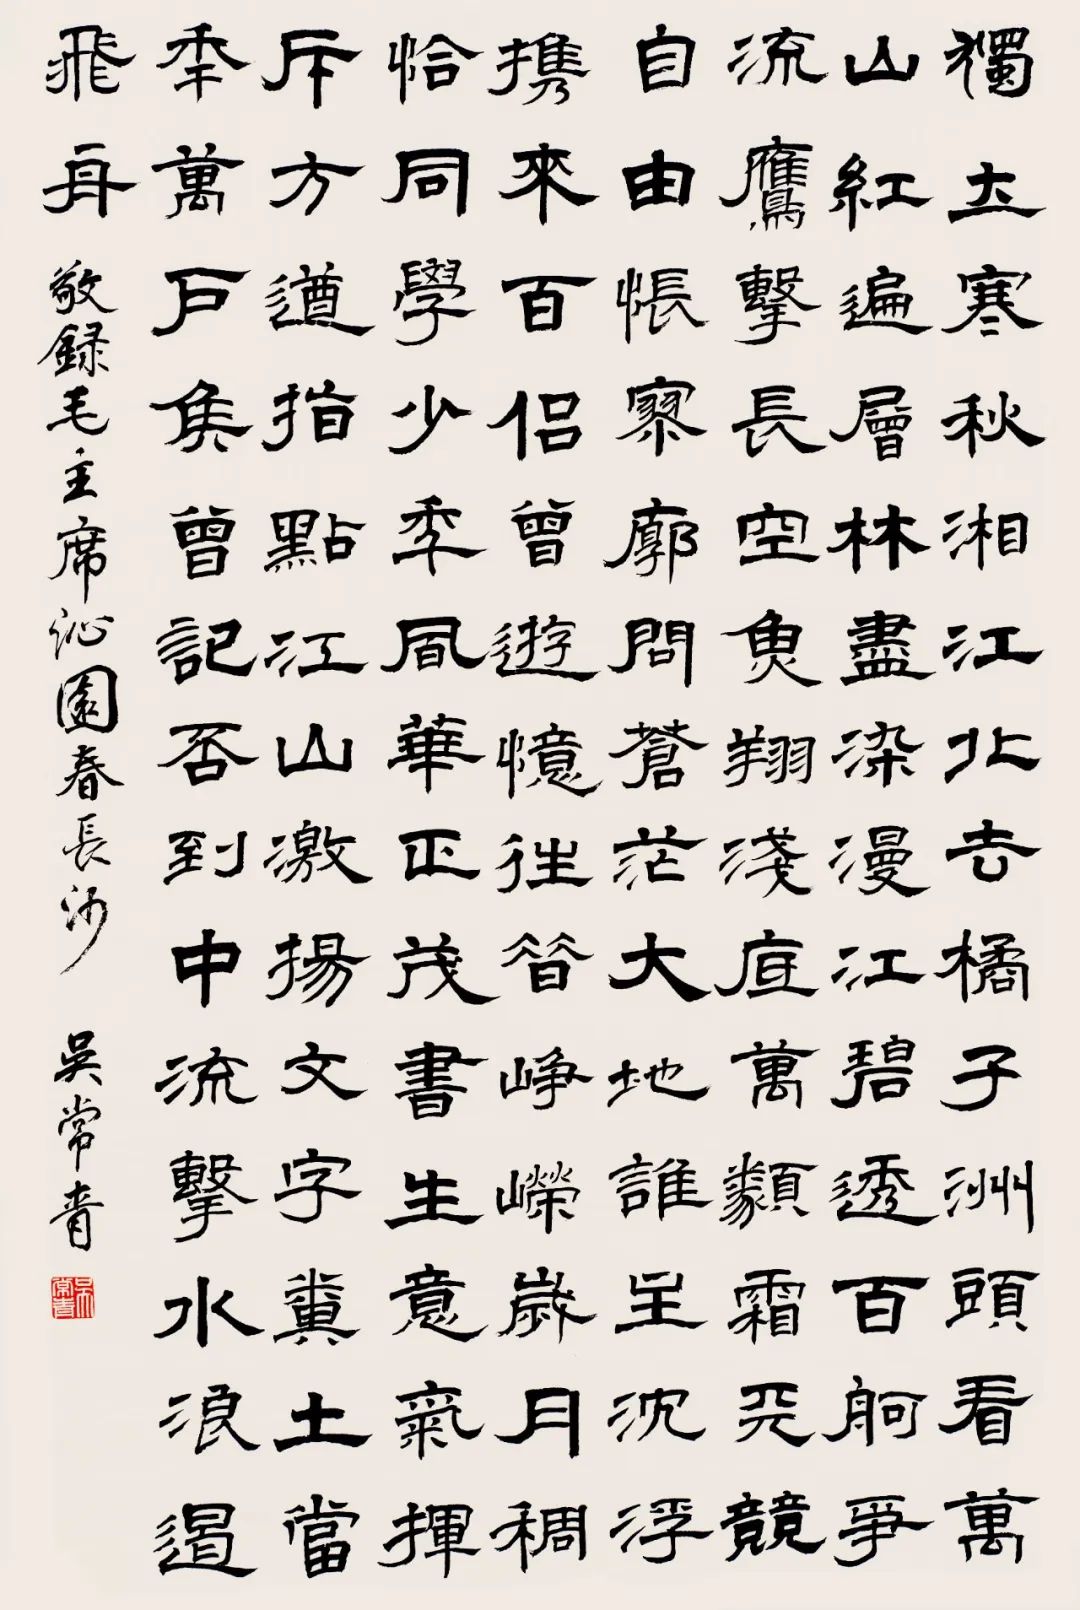 獨立寒秋湘江北去橘子洲頭看萬
山紅遍層林盡染漫江碧透百舸爭
流鷹擊長空魚翔淺底萬類霜天競
自由悵寥廓問蒼茫大地誰主沈浮
攜來百侶曾遊憶往昔崢嶸歲月稠
恰同學少年風華正茂書生意氣揮
斥方遒指點江山激揚文字糞土當
年萬戶侯曾記否到中流擊水浪遏
飛舟
敬録毛主席沁園春長沙
吳常青
吳常青